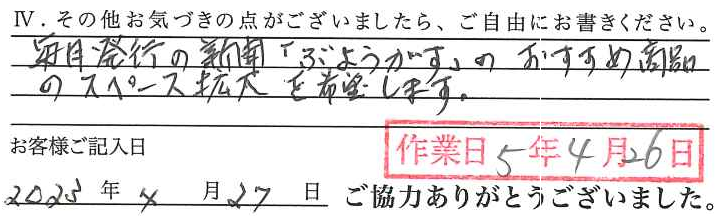 Ⅳ．その他お気づきの点がございましたら、ご自由にお書きください。
毎月発行の新聞「ぶようがす」のおすすめ商品
のスペース拡大を希望します。
お客様ご記入日
作業日 5年4月26日
2023年4月27日 ご協力ありがとうございました。